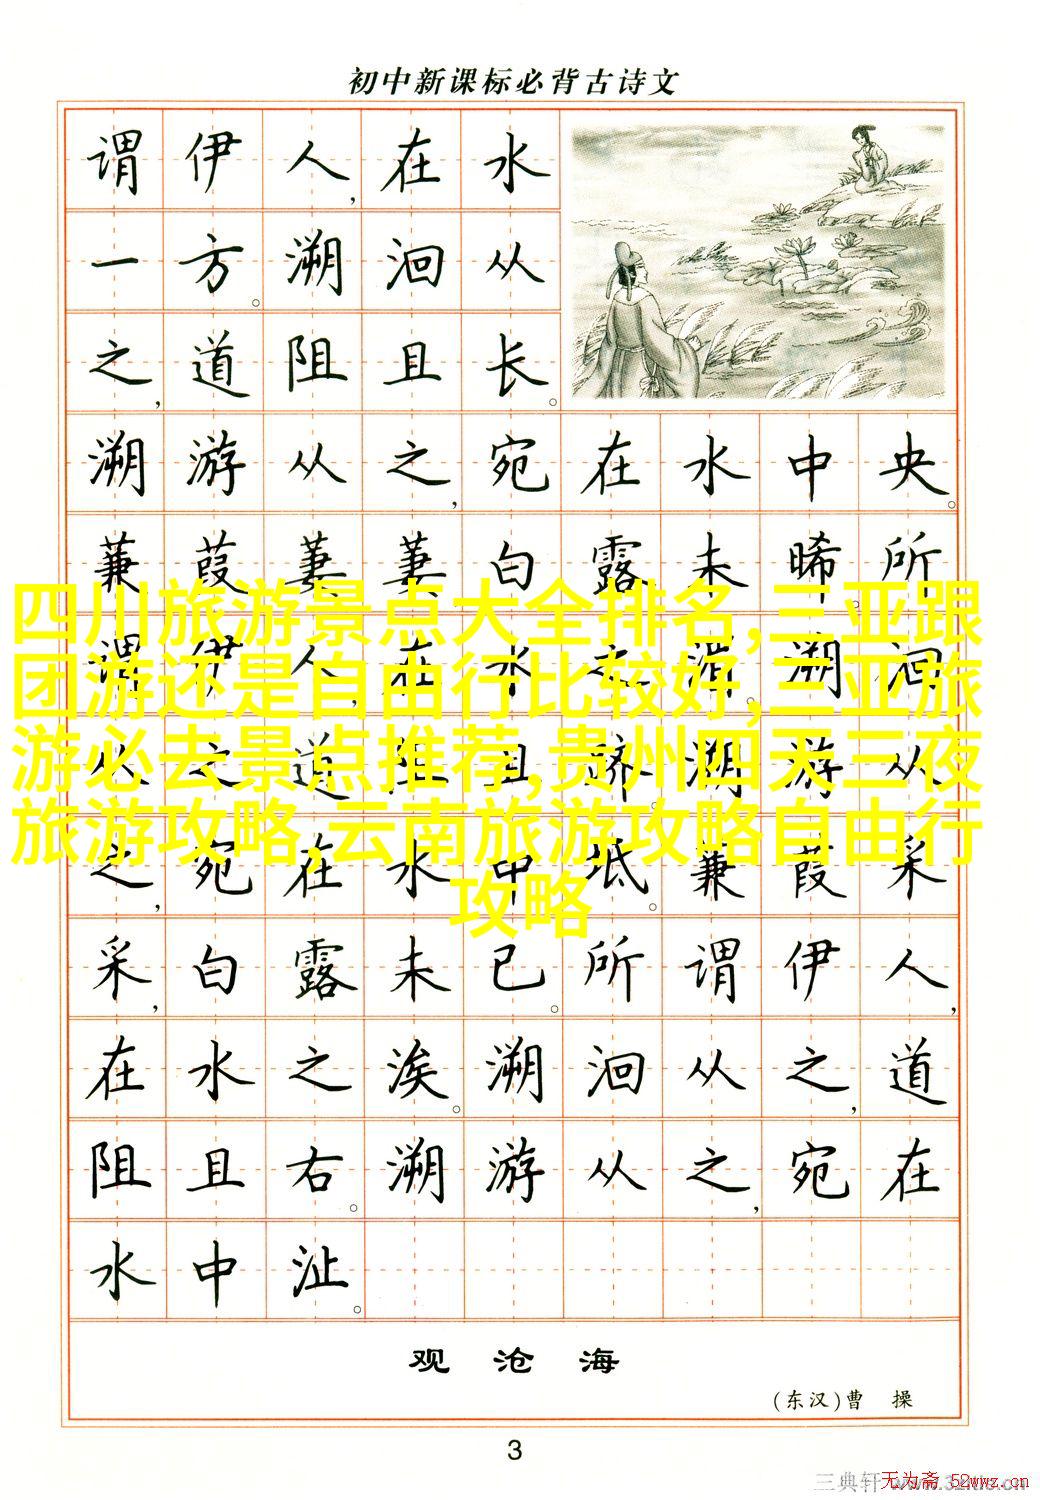 初中新课标必背古诗文
谓伊人，在水
一方。溯洄从
之，道阻且长。
溯游从之，宛在水中央。
蒹葭萋萋，白露未晞。所
谓伊人，在水之湄。溯洄
从之，道阻且跻。溯游从
之，宛在水中坻。蒹葭采
采，白露未已。所谓伊人，
在水之涘。溯洄从之，道
阻且右。溯游从之，宛在
水中沚。
四川旅游景点大全排名,三亚跟
团游还是自由行比较好,三亚旅
游必去景点推荐,贵州四天三夜
旅游攻略,云南旅游攻略自由行
攻略
观沧海
(东汉)曹 操
3
三典轩
无为斋 52wwz.cn